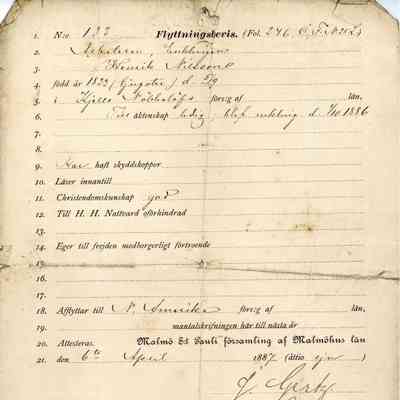 1. N:o 133 Flyttningsbevis. (Fol. 246
2. Arbetaren, Enklingen
3. Henrik Nilsson
4. född år 1822 ( ) d. 5/9
5. i för:g af län,
6. Till äktenskap ledig, blef enkling d. 7/10 1886
7.
8.
9. Har haft skyddskoppor
10. Läser innantill
11. Christendomskunskap god
12. Till H. H. Nattvard oförhindrad
13.
14. Eger till frejden medborgerligt förtroende
15.
16.
17.
18. Afflyttar till N. Amerika för:g af län,
19. mantalskrifningen här till nästa år
20. Attesteras. Malmö S:t Pauli församling af Malmöhus län
21. den 6te April 1887 (åttio sju )